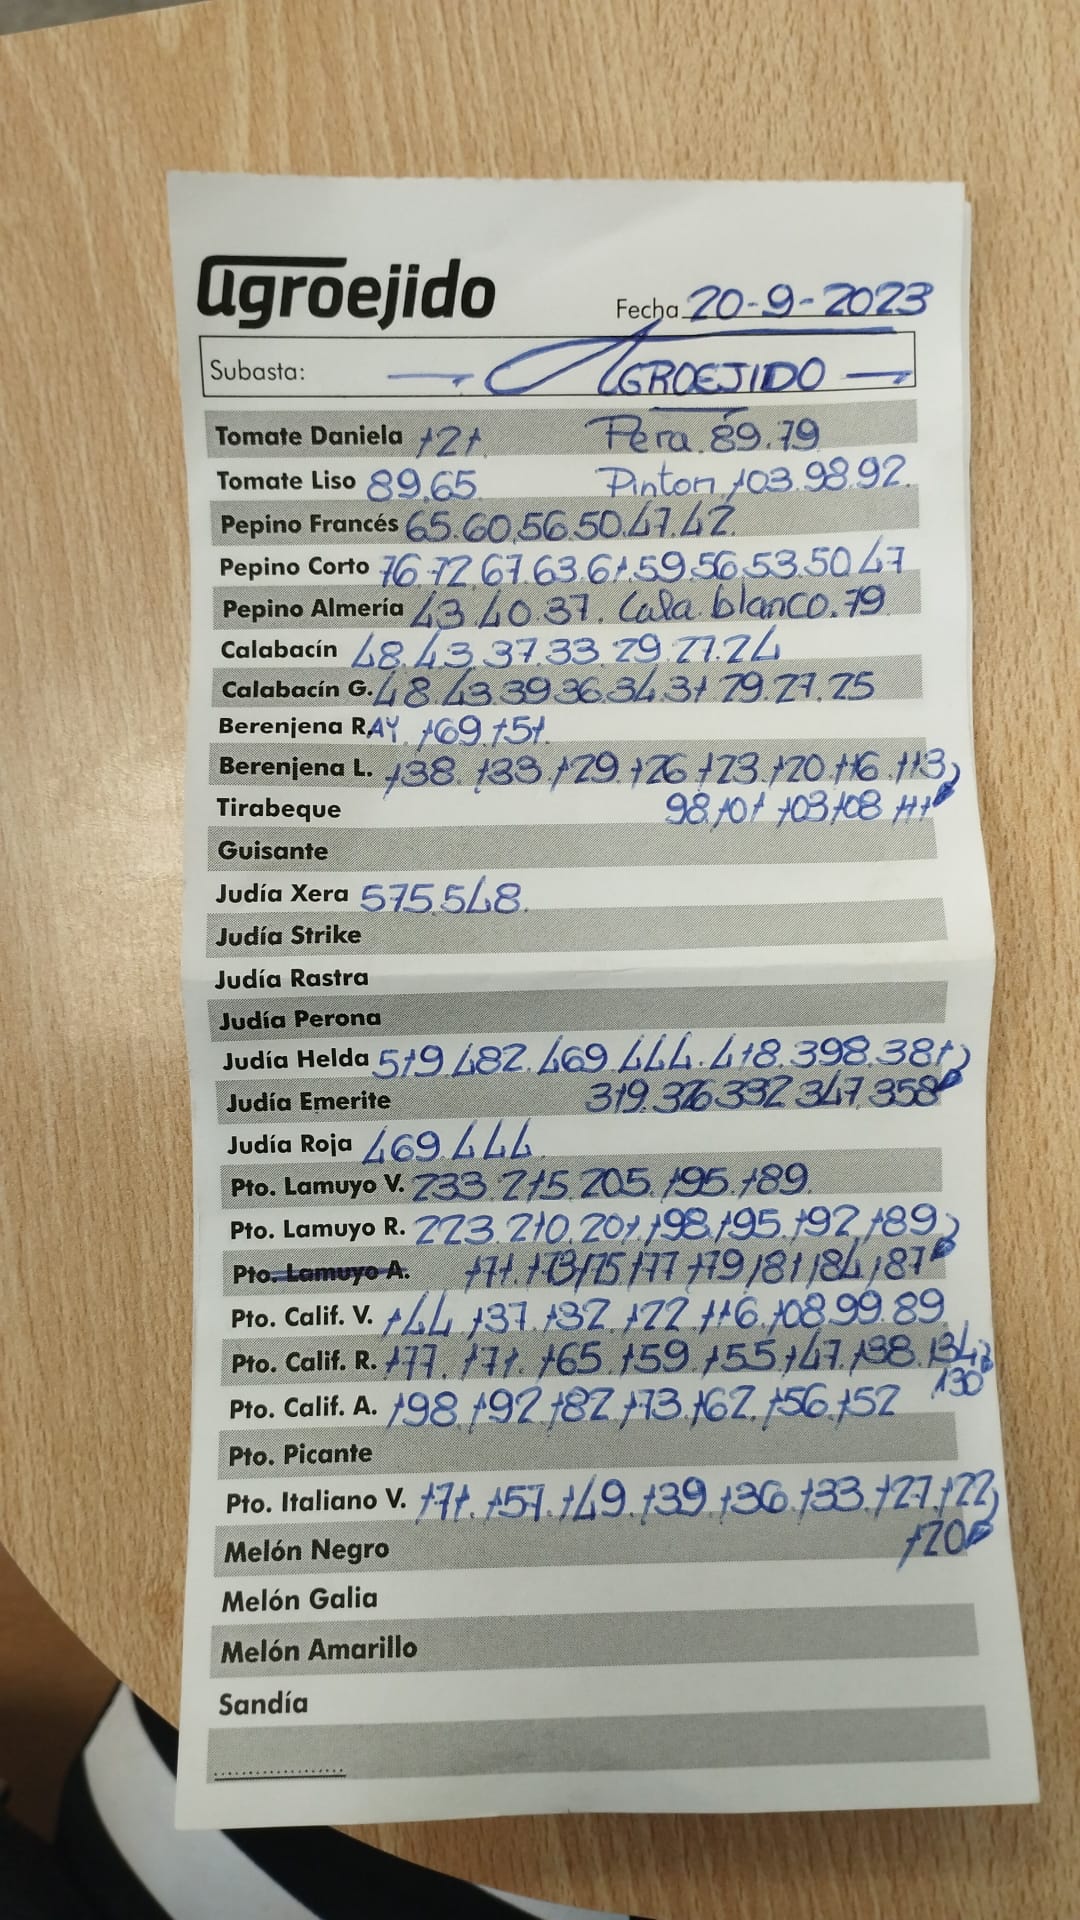 agroejido
Fecha 20-9-2023
Subasta: AGROEJIDO
Tomate Daniela 121. Pera. 89.79
Tomate Liso 89.65. Pinton 103.98.92.
Pepino Francés 65.60.56.50.47.42.
Pepino Corto 76.72.67.63.61.59.56.53.50.47
Pepino Almería 43.40.37. Cala. blanco.79
Calabacín 48.43.37.33.29.27.24
Calabacín G. 48.43.39.36.34.31.29.27.25
Berenjena RAY. 169.151.
Berenjena L. 138.133.129.126.123.120.116.113
Tirabeque 98.101.103.108.111
Guisante
Judía Xera 575.548.
Judía Strike
Judía Rastra
Judía Perona
Judía Helda 519.482.469.444.418.398.381
Judía Emerite 319.326.332.347.358
Judía Roja 469.444.
Pto. Lamuyo V. 233.215.205.195.189.
Pto. Lamuyo R. 223.210.201.198.195.192.189
Pto. Lamuyo A. 171.173.175.177.179.181.184.187
Pto. Calif. V. 144.137.132.122.116.108.99.89
Pto. Calif. R. 177.171.165.159.155.147.138.134
130
Pto. Calif. A. 198.192.182.173.162.156.152
Pto. Picante
Pto. Italiano V. 171.157.149.139.136.133.127.122
120
Melón Negro
Melón Galia
Melón Amarillo
Sandía